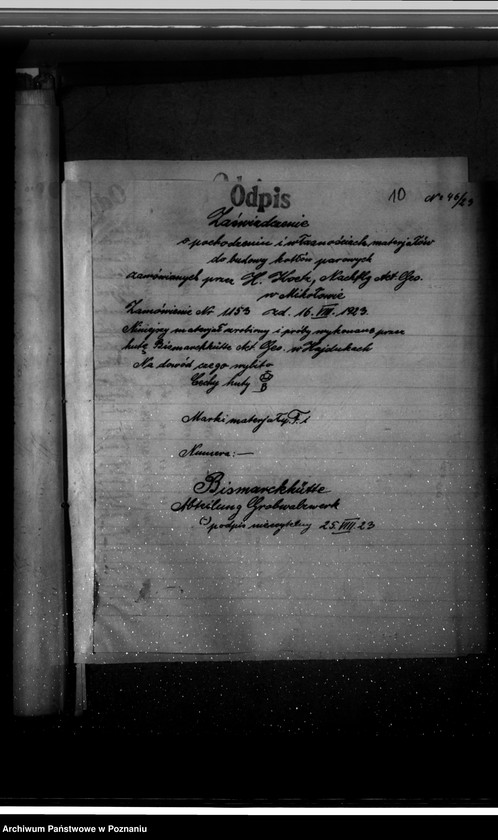 Odpis
10 No 46/23
Zaświadczenie
o pochodzeniu i własnościach materjałów
do budowy kotłów parowych
zamówionych przez H. Koetz, Nachflg Akt. Ges.
w Mikołowie
Zamówienie Nr 1153 zd. 16. VIII. 1923.
Niniejszy materjał zrobiony i próby wykonane przez
hutę Bismarckhütte Akt Ges. w Hajdukach
Na dowód czego wybito
Cechy huty B
Marki materjału F. I
Numera: —
Bismarckhütte
Abteilung Grobwalzwerk
(-) podpis nieczytelny 25. VIII 23
Archiwum Państwowe w Poznaniu